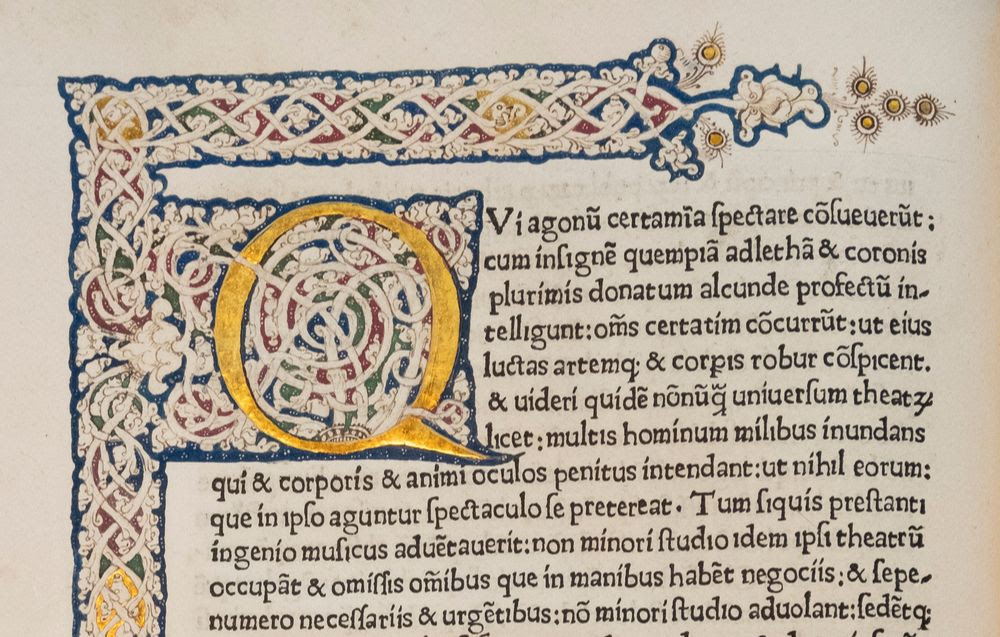 QVi agonū certamīa ſpectare cōſueuerūt:
cum inſignē quempiā adlethā & coronis
plurimis donatum alcunde profectū in-
telligunt: om̄s certatim cōcurrūt: ut eius
luctas artemq; & corꝑis robur cōſpicent.
& uideri quidē nōnūq̄ uniuerſum theatꝝ
licet: multis hominum milibus inundans
qui & corporis & animi oculos penitus intendant: ut nihil eorum:
que in ipſo aguntur ſpectaculo ſe pretereat. Tum ſiquis preſtanti
ingenio muſicus aduētauerit: non minori ſtudio idem ipſi theatrū
occupāt & omiſſis om̄ibus que in manibus habēt negociis: & ſepe-
numero neceſſariis & urgētibus: nō minori ſtudio aduolant: ſedētq;